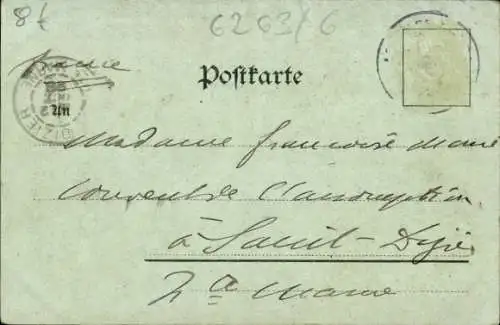 8 6263/6
France
Postkarte
DIZIER
Madame françoise marie
Couvent de l'assomption
à Saint-Dizier
Hte marne